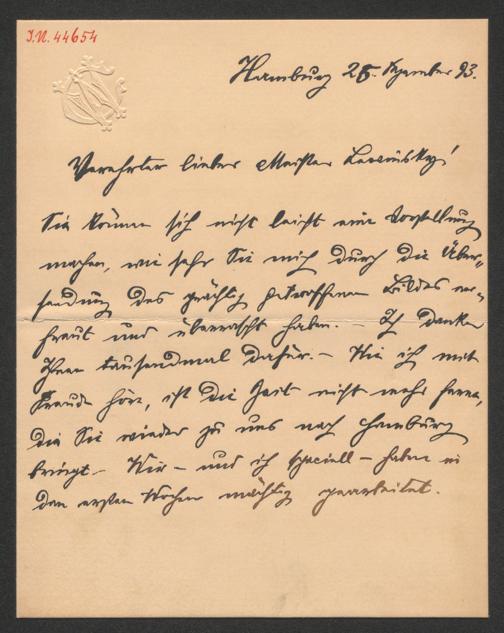 J.N. 44654
Hamburg 25. September 93.
Verehrter lieber Meister Lewinsky!
Sie können sich nicht leicht eine Vorstellung
machen, wie sehr Sie mich durch die Über-
sendung des prächtig getroffenen Bildes er-
freut und überrascht haben. – Ich danke
Ihnen tausendmal dafür. – Wie ich mit
Freude höre, ist die Zeit nicht mehr ferne,
die Sie wieder zu uns nach Hamburg
bringt. Wir – und ich speciell – haben in
den ersten Wochen mächtig gearbeitet.